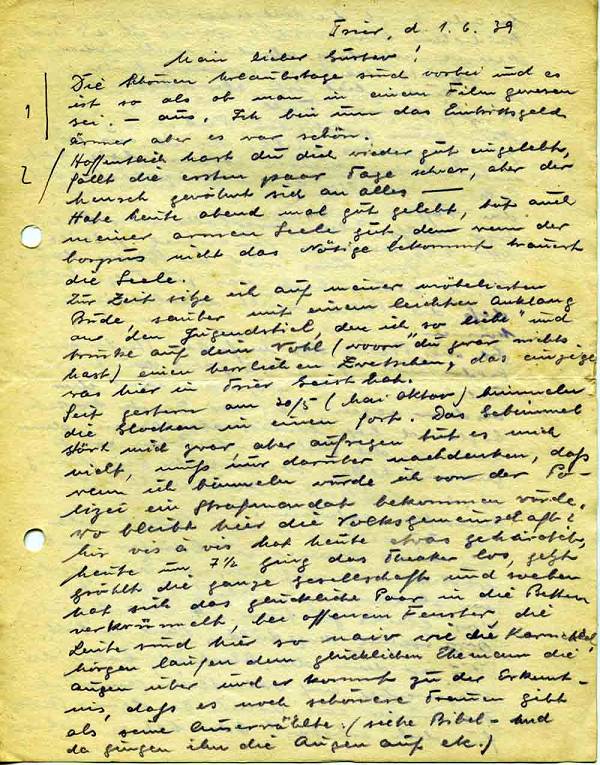 Trier, d. 1.6.39
Mein lieber Gustav!
Die schönen Urlaubstage sind vorbei und es
1 ist so als ob man in einem Film gewesen
sei. – aus. Ich bin nun das Eintrittsgeld
ärmer aber es war schön.
2 Hoffentlich hast du dich wieder gut eingelebt,
fällt die ersten paar Tage schwer, aber der
Mensch gewöhnt sich an alles —
Habe heute abend mal gut gelebt, tut auch
meiner armen Seele gut denn wenn der
Corpus nicht das Nötige bekommt trauert
die Seele.
Zur Zeit sitze ich auf meiner möblierten
Bude, sauber mit einem leichten Anklang
an den Jugendstil, den ich "so liebe" und
trinke auf dein Wohl (wovon du zwar nichts
hast) einen herrlichen Zwetschen, das einzige
was hier in Trier Geist hat.
Seit gestern am 20/5 (Mai) bimmeln
die Glocken in einem fort. Das Gebimmel
stört mich zwar, aber aufregen tut es mich
nicht, muß nur darüber nachdenken, daß
wenn ich bimmeln würde ich von der Po-
lizei ein Strafmandat bekommen würde.
Wo bleibt hier die Volksgemeinschaft?
vis à vis hat heute etwas geheiratet,
heute um 7½ ging das Theater los, jetzt
grölt die ganze Gesellschaft und soeben
hat sich das glückliche Paar in die Betten
verkrümelt, bei offenem Fenster, die
Leute sind hier so naiv wie die Karnickel,
morgen laufen dem glücklichen Ehemann die
Augen über und er kommt zu der Erkennt-
nis, daß es noch schönere Frauen gibt
als seine Auserwählte. (siehe Bibel – und
da gingen ihm die Augen auf etc.)